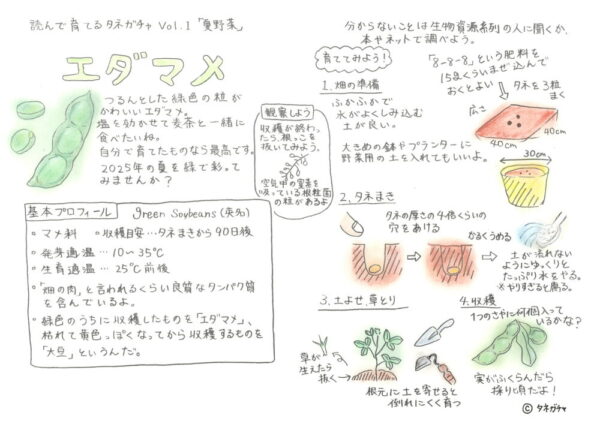 読んで育てるタネガチャ Vol.1「夏野菜」
エダマメ
つるんとした緑色の粒が
かわいいエダマメ。
塩を効かせて麦茶と一緒に
食べたいね。
自分で育てたものなら最高です。
2025年の夏を緑で彩って
みませんか？
観察しよう
収穫が終わっ
たら、根っこを
抜いてみよう。
空気中の窒素を
吸っている根粒菌
の粒があるよ
基本プロフィール green Soybeans(英名)
・マメ科 ・収穫目安…タネまきから90日後
・発芽適温…10～35℃
・生育適温…25℃前後
・「畑の肉」と言われるくらい良質なタンパク質
を含んでいるよ。
・緑色のうちに収穫したものを「エダマメ」、
枯れて黄色っぽくなってから収穫するものを
「大豆」というんだ。
分からないことは生物資源系列の人に聞くか、
本やネットで調べよう。
育ててみよう!
1.畑の準備
ふかふかで
水がよくしみ込む
土が良い。
「8-8-8」という肥料を
15gくらいまぜ込んで
おくとよい
タネを3粒
まく
広さ
40cm
40cm
大きめの鉢やプランターに
野菜用の土を入れてもいいよ。
30cm
2.タネまき
タネの厚さの4倍くらいの
穴をあける
かるくうめる
土が流れない
ようにゆっくりと
たっぷり水をやる。
※やりすぎると腐る。
3.土よせ、草とり
草が
生えたら
抜く
根元に土を寄せると
倒れにくく育つ
4.収穫
1つのさやに何個入って
いるかな？
実がふくらんだら
採り頃だよ!
© タネガチャ